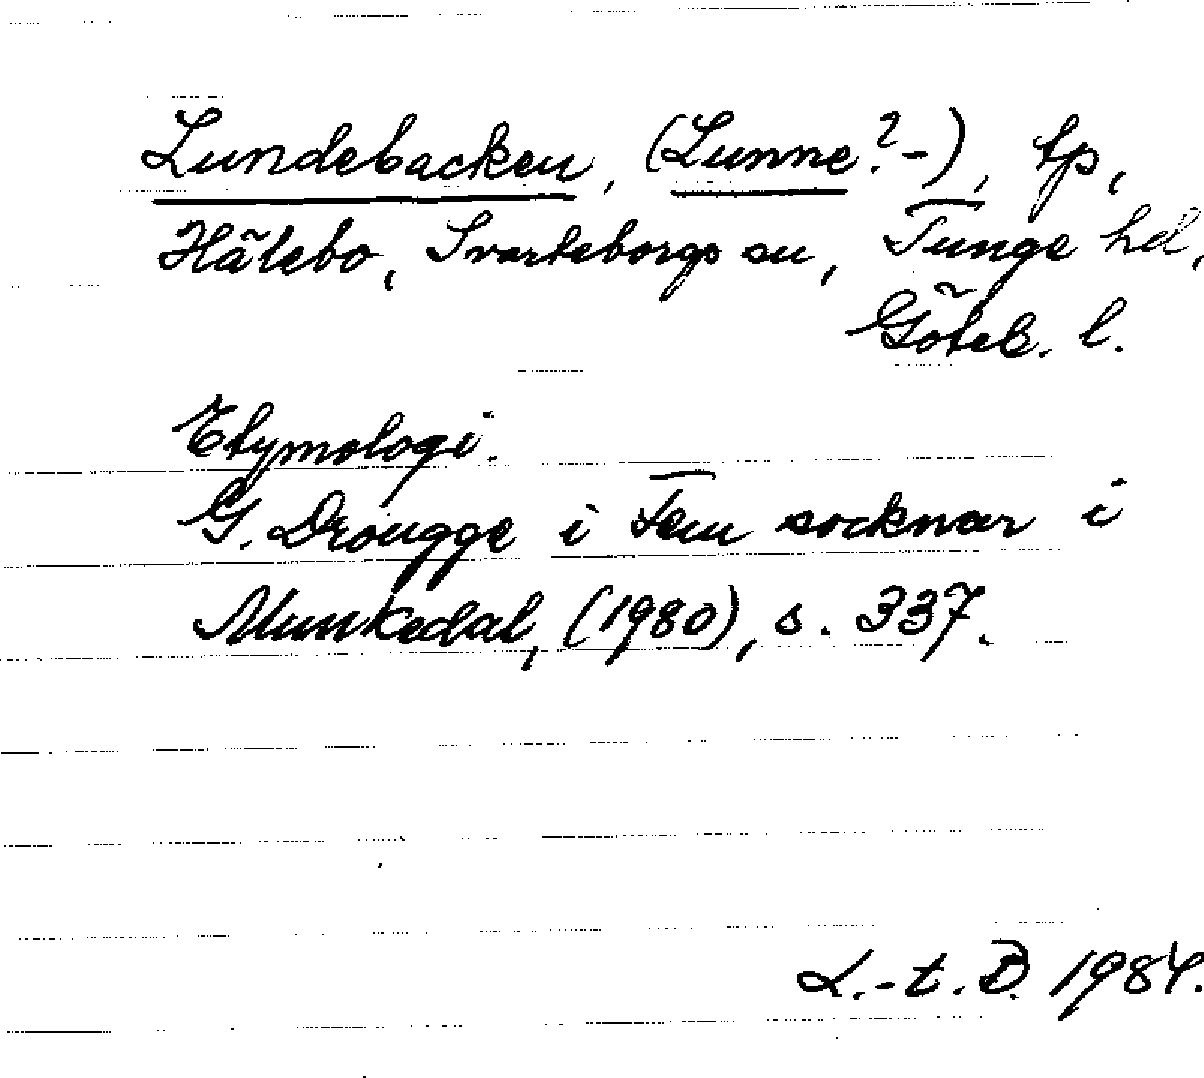 Lundebacken, (Lunne?-), tp,
Hålebo, Svarteborgs sn, Tunge hd,
Göteb. l.
Etymologi.
G. Drougge i Fem socknar i
Munkedal, (1980), s. 337.
L.-t. D. 1984.